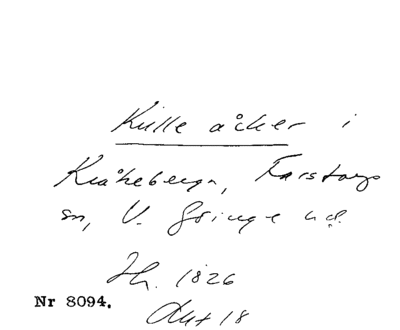 Kulle åcker i
Kråkeberga, Farstorps
sn, V. Göinge hd.
Hr. 1826
Nr 8094.
Akt 18